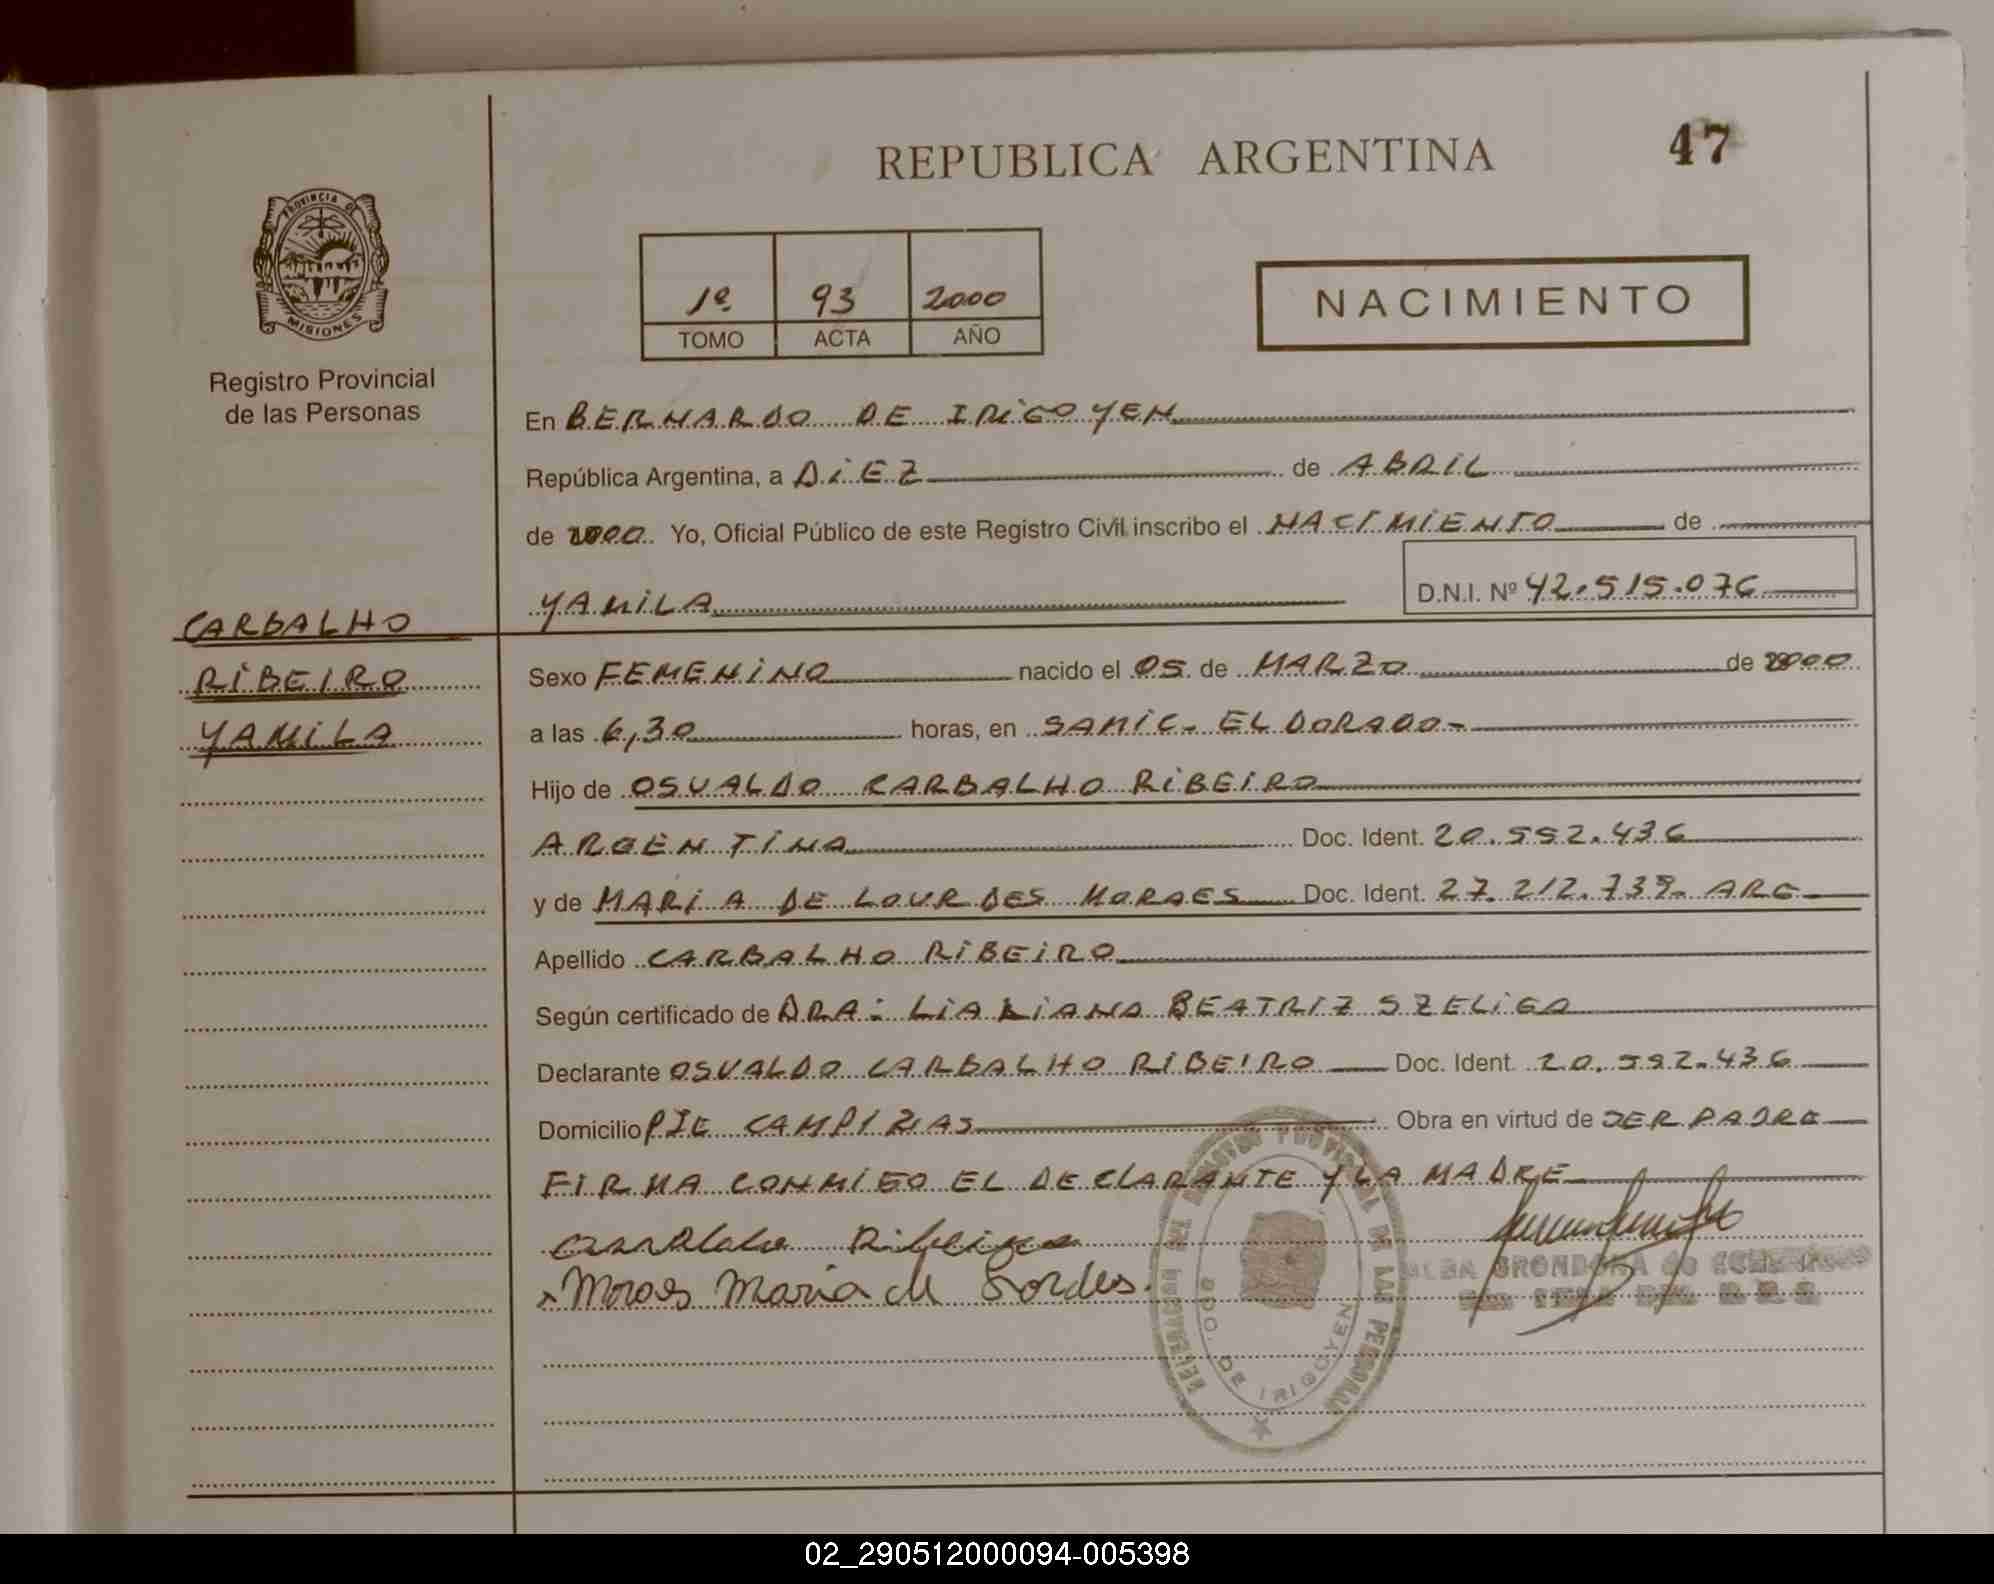 REPUBLICA ARGENTINA
47
PROVINCIA DE
MISIONES
Registro Provincial
de las Personas
1º 93 2000
TOMO ACTA AÑO
NACIMIENTO
En BERNARDO DE IRIGOYEN
República Argentina, a DIEZ de ABRIL
de 2000 Yo, Oficial Público de este Registro Civil inscribo el NACIMIENTO de
YAMILA D.N.I. Nº 42.515.076
CARBALHO
RIBEIRO
YAMILA
Sexo FEMENINO nacido el 05 de MARZO de 2000
a las 6,30 horas, en SAMIC - ELDORADO-
Hijo de OSVALDO CARBALHO RIBEIRO
ARGENTINO Doc. Ident. 20.552.436
y de MARIA DE LOURDES MORAES Doc. Ident. 27.212.739- ARG-
Apellido CARBALHO RIBEIRO
Según certificado de DRA: BEATRIZ SZELIGA
Declarante OSVALDO CARBALHO RIBEIRO Doc. Ident. 20.552.436
Domicilio PJE CAMPIÑAS Obra en virtud de SER PADRE
FIRMA CONMIGO EL DECLARANTE Y LA MADRE
Ribeiro
x Moraes Maria de Lordes.
REGISTRO PROVINCIAL DE LAS PERSONAS
BDO. DE IRIGOYEN
02_290512000094-005398